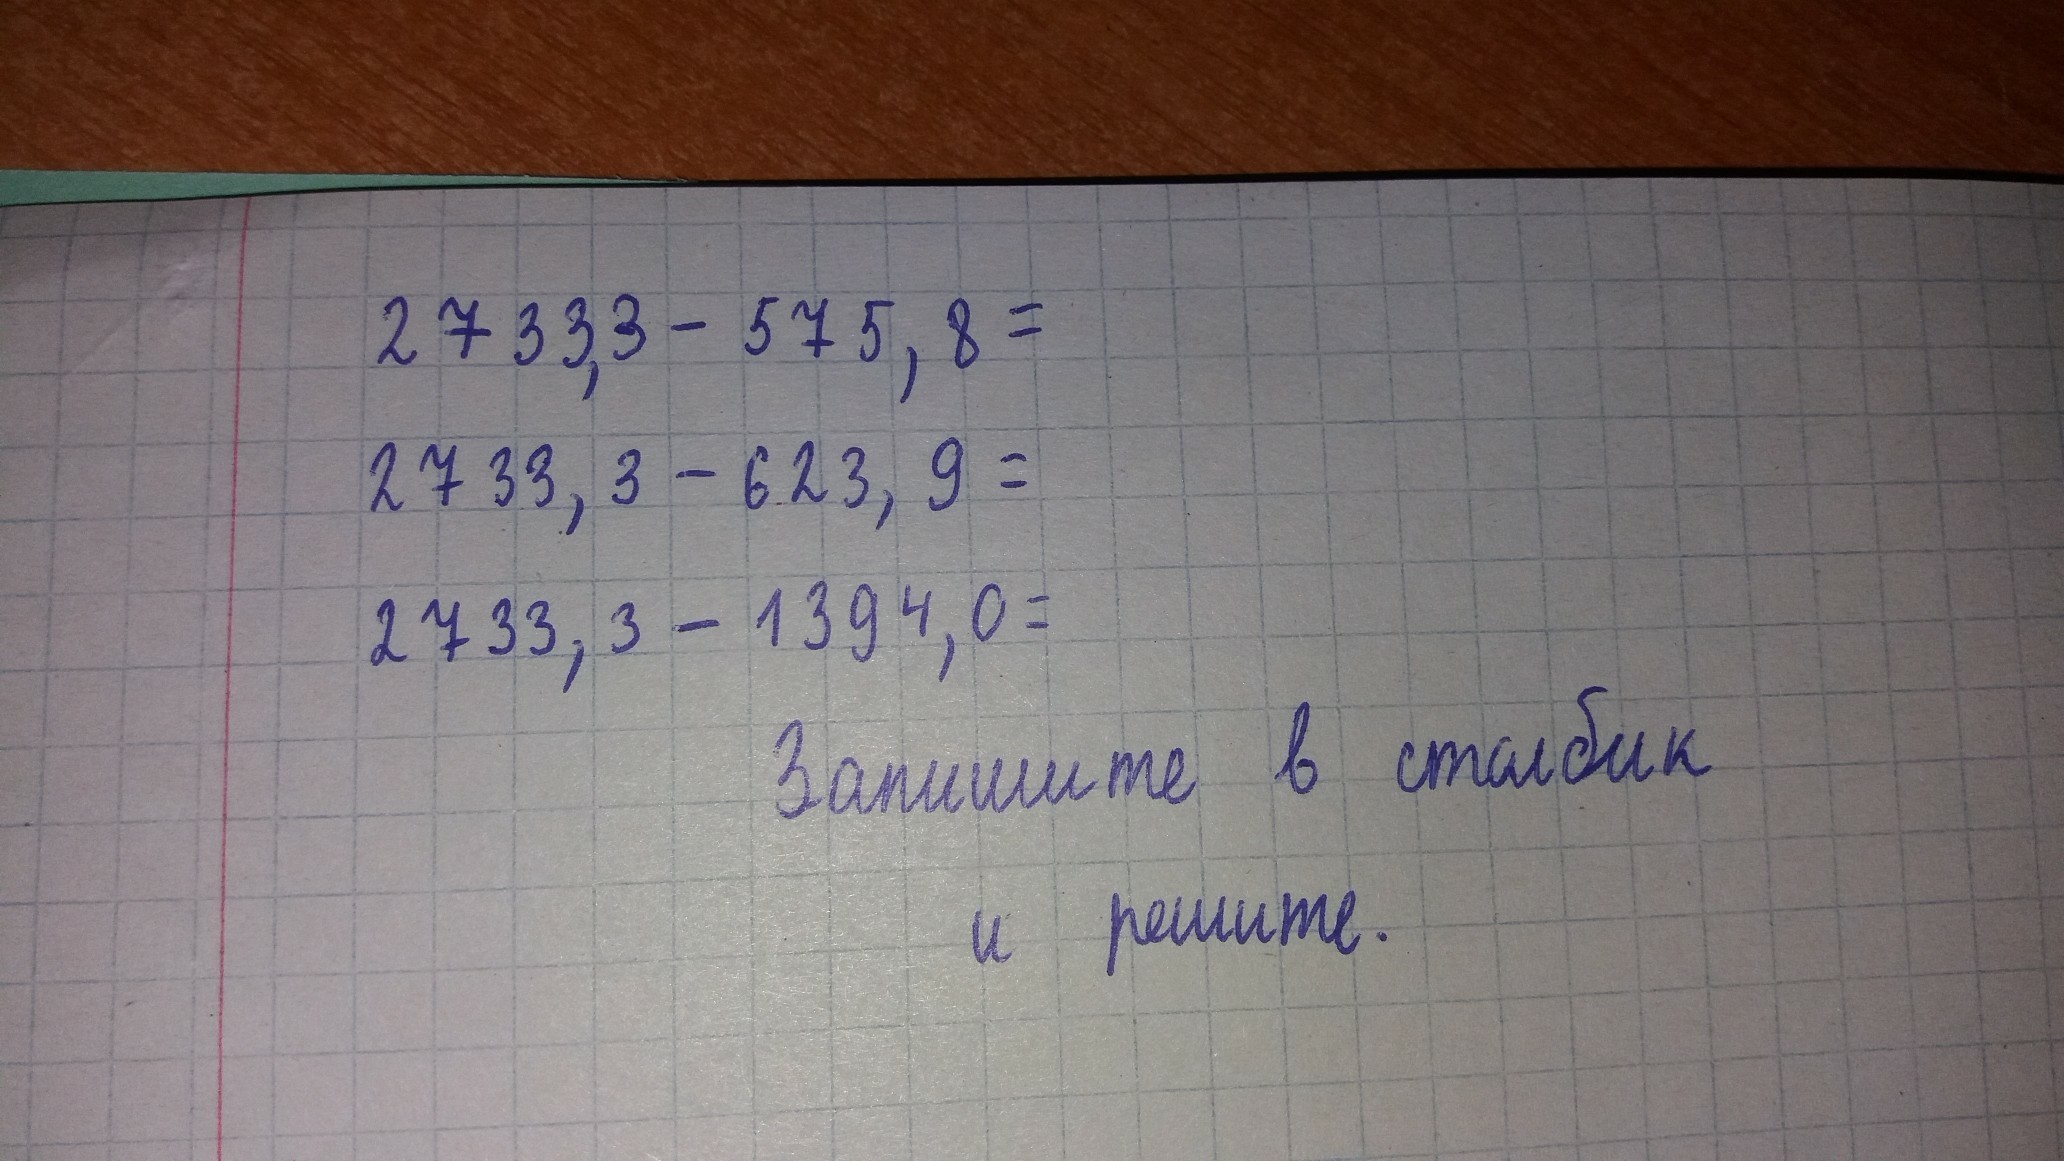 2733,3 - 575,8 =
2733,3 - 623,9 =
2733,3 - 1394,0 =
Запишите в сталбик
и решите.